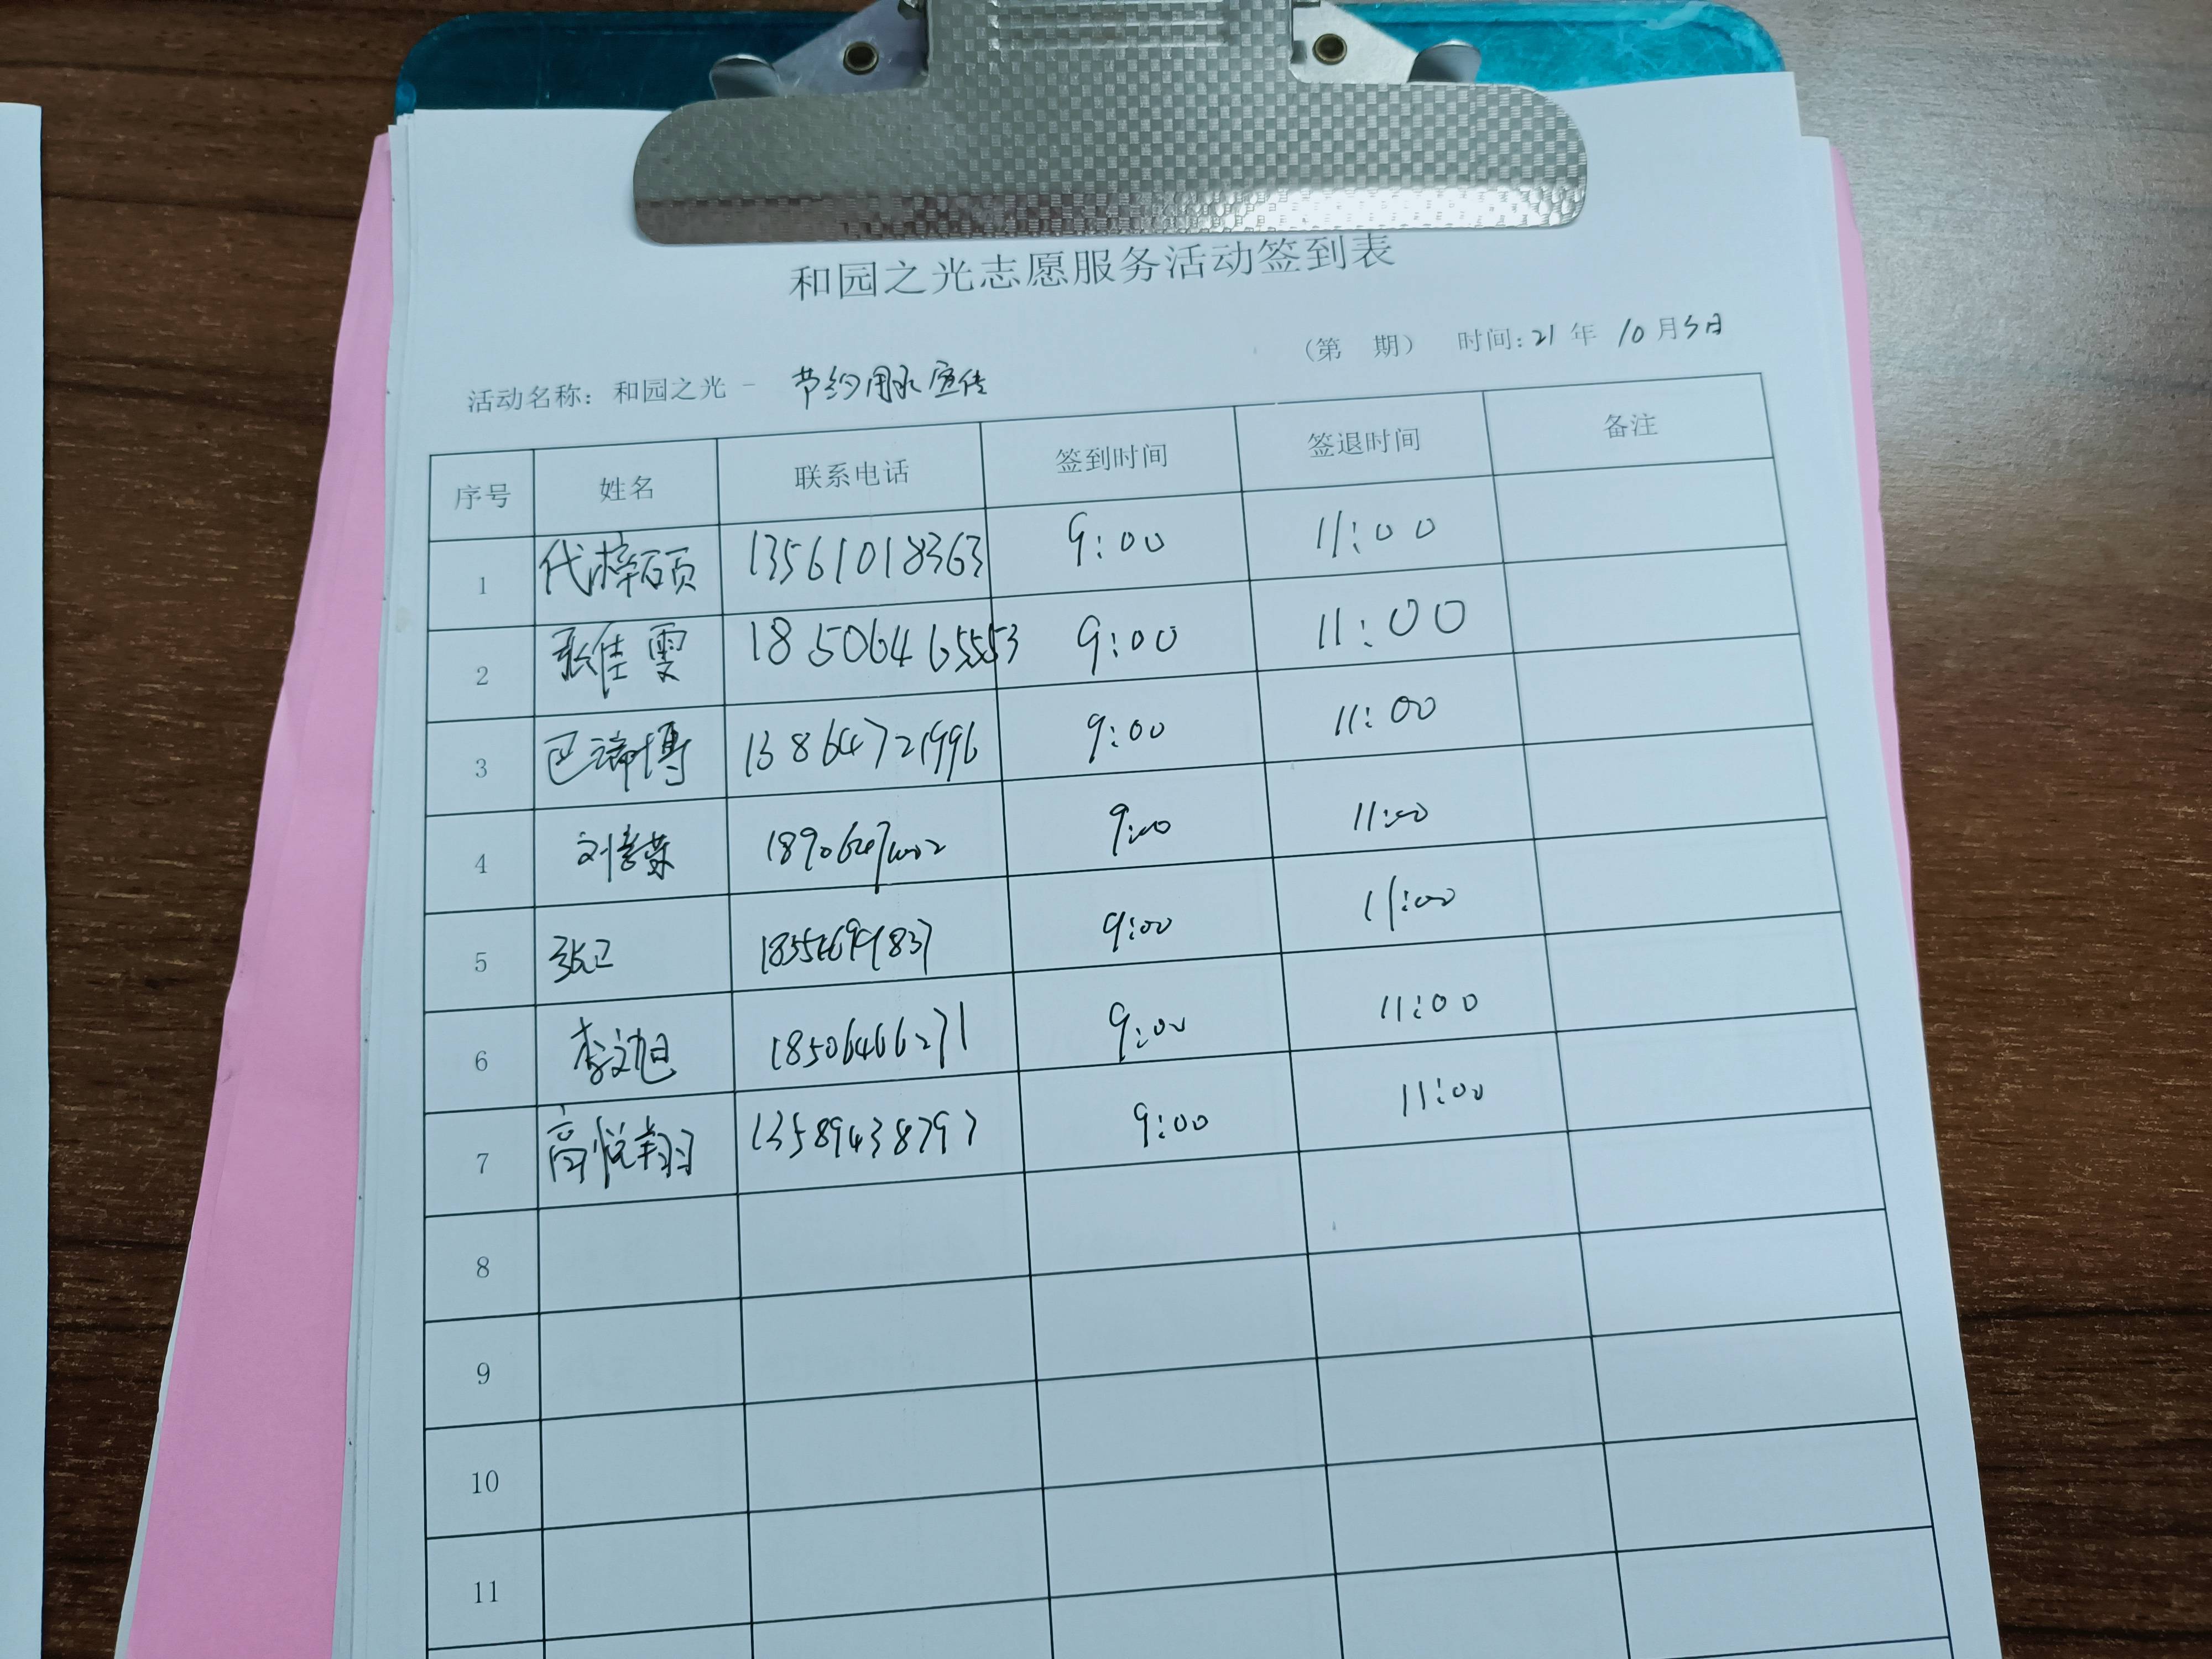 和园之光志愿服务活动签到表
(第 期) 时间:21年 10月5日
活动名称：和园之光 - 节约用水宣传
序号 姓名 联系电话 签到时间 签退时间 备注
1 代梓硕 13561018363 9:00 11:00
2 张佳雯 9:00 11:00
3 巴 博 13864721996 9:00 11:00
4 刘 荣 9:00 11:00
5 张卫 9:00 11:00
6 李文旭 18506466271 9:00 11:00
7 高悦翔 13589438797 9:00 11:00
8
9
10
11